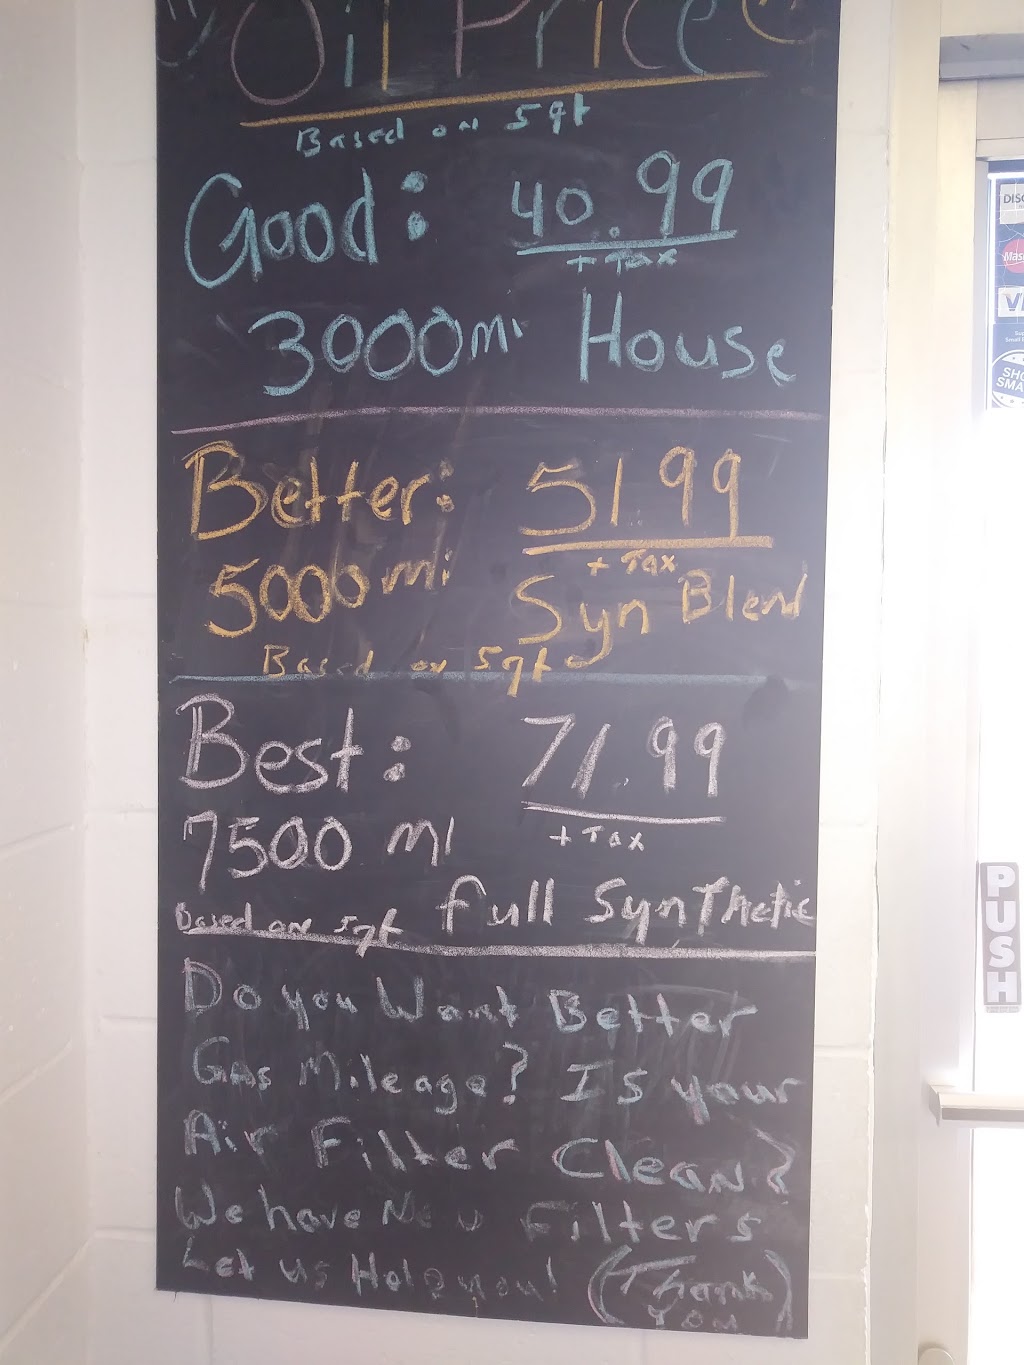 Oil Price
Based on 5qt
Good: 40.99
+ Tax
3000mi House
Better: 51.99
+ Tax
5000mi Syn Blend
Based on 5qt
Best: 71.99
+ Tax
7500 mi
Based on 5qt full Synthetic
Do you Want Better
Gas Mileage? Is your
Air Filter Clean?
We have New Filters
Let us Help you! (Thank
You)
DISC
Mas
PUSH